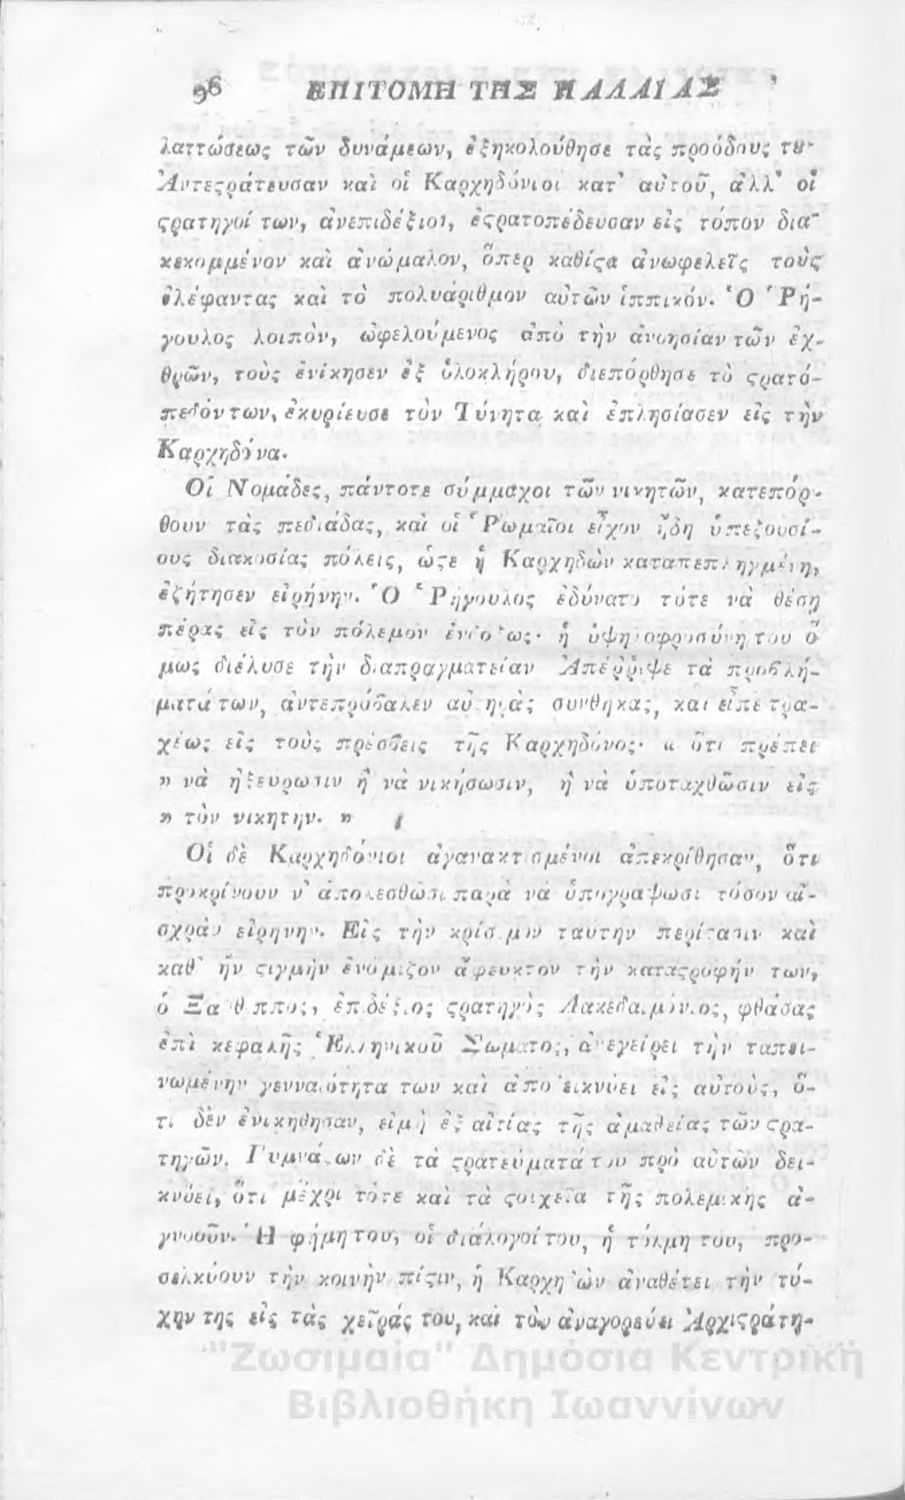 96 ΕΠΙΤΟΜΗ ΤΗΣ ΠΑΛΑΙΑΣ
λαττώσεως τῶν δυνάμεων, ἐξηκολούθησε τὰς προόδους τȣ·
Ἀντεςράτευσαν καὶ οἱ Καρχηδόνιοι κατ' αὐτοῦ, ἀλλ' οἱ
ςρατηγοί των, ἀνεπιδέξιοι, ἐςρατοπέδευσαν εἰς τόπον δια-
κεκομμένον καὶ ἀνώμαλον, ὅπερ καθίςα ἀνωφελεῖς τοὺς
ἐλέφαντας καὶ τὸ πολυάριθμον αὐτῶν ἱππικόν. Ὁ Ῥή-
γουλος λοιπὸν, ὠφελούμενος ἀπὸ τὴν ἀνοησίαν τῶν ἐχ-
θρῶν, τοὺς ἐνίκησεν ἐξ ὁλοκλήρου, διεπόρθησε τὸ ςρατό-
πεδόν των, ἐκυρίευσε τὸν Τύνητα καὶ ἐπλησίασεν εἰς τὴν
Καρχηδόνα.
Οἱ Νομάδες, πάντοτε σύμμαχοι τῶν νικητῶν, κατεπόρ-
θουν τὰς πεδιάδας, καὶ οἱ Ῥωμαῖοι εἶχον ἤδη ὑπεξουσί-
ους διακοσίας πόλεις, ὥςε ἡ Καρχηδὼν καταπεπληγμένη,
ἐζήτησεν εἰρήνην. Ὁ Ῥήγουλος ἐδύνατο τότε νὰ θέσῃ
πέρας εἰς τὸν πόλεμον ἐνδόξως· ἡ ὑψηλοφροσύνη του ὅ
μως διέλυσε τὴν διαπραγματείαν Ἀπέῤῥιψε τὰ προβλή-
ματά των, ἀντεπρόβαλεν αὐςηρὰς συνθήκας, καὶ εἶπε τρα-
χέως εἰς τοὺς πρέσβεις τῆς Καρχηδόνος· « ὅτι πρέπει
» νὰ ἠξεύρωσιν ἢ νὰ νικήσωσιν, ἢ νὰ ὑποταχθῶσιν εἰς
» τὸν νικητήν. »
Οἱ δὲ Καρχηδόνιοι ἀγανακτισμένοι ἀπεκρίθησαν, ὅτι
προκρίνουν ν' ἀπολεσθῶσι παρὰ νὰ ὑπογράψωσι τόσον αἰ-
σχρὰν εἰρήνην. Εἰς τὴν κρίσιμον ταύτην περίςασιν καὶ
καθ' ἣν ςιγμὴν ἐνόμιζον ἄφευκτον τὴν καταςροφήν των,
ὁ Ξάνθιππος, ἐπιδέξιος ςρατηγὸς Λακεδαιμόνιος, φθάσας
ἐπὶ κεφαλῆς Ἑλληνικοῦ Σώματος, ἀνεγείρει τὴν ταπει-
νωμένην γενναιότητα των καὶ ἀποδεικνύει εἰς αὐτοὺς, ὅ-
τι δὲν ἐνικήθησαν, εἰμὴ ἐξ αἰτίας τῆς ἀμαθείας τῶν ςρα-
τηγῶν. Γυμνάζων δὲ τὰ ςρατεύματά των πρὸ αὐτῶν δει-
κνύει, ὅτι μέχρι τότε καὶ τὰ ςοιχεῖα τῆς πολεμικῆς ἀ-
γνοοῦν. Ἡ φήμη του, οἱ διάλογοί του, ἡ τόλμη του, προ-
σελκύουν τὴν κοινὴν πίςιν, ἡ Καρχηδὼν ἀναθέτει τὴν τύ-
χην της εἰς τὰς χεῖράς του, καὶ τὸν ἀναγορεύει Ἀρχιςράτη-
"Ζωσιμαία" Δημόσια Κεντρική
Βιβλιοθήκη Ιωαννίνων